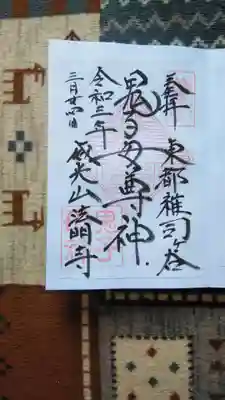 奉拝 東都雑司ヶ谷
鬼子母尊神
令和三年 威光山 法明寺
三月廿四日